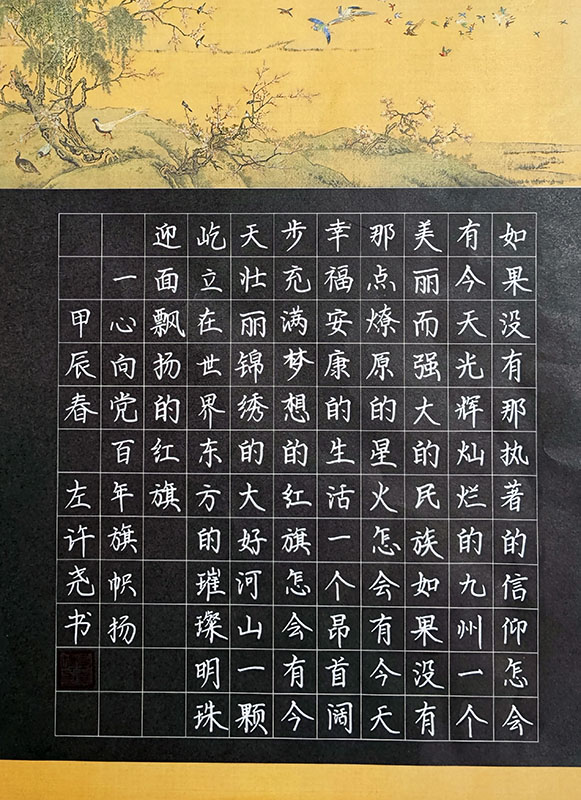 如果没有那执著的信仰怎会
有今天光辉灿烂的九州一个
美丽而强大的民族如果没有
那点燎原的星火怎会有今天
幸福安康的生活一个昂首阔
步充满梦想的红旗怎会有今
天壮丽锦绣的大好河山一颗
屹立在世界东方的璀璨明珠
迎面飘扬的红旗
一心向党百年旗帜扬
甲辰春 左许尧书